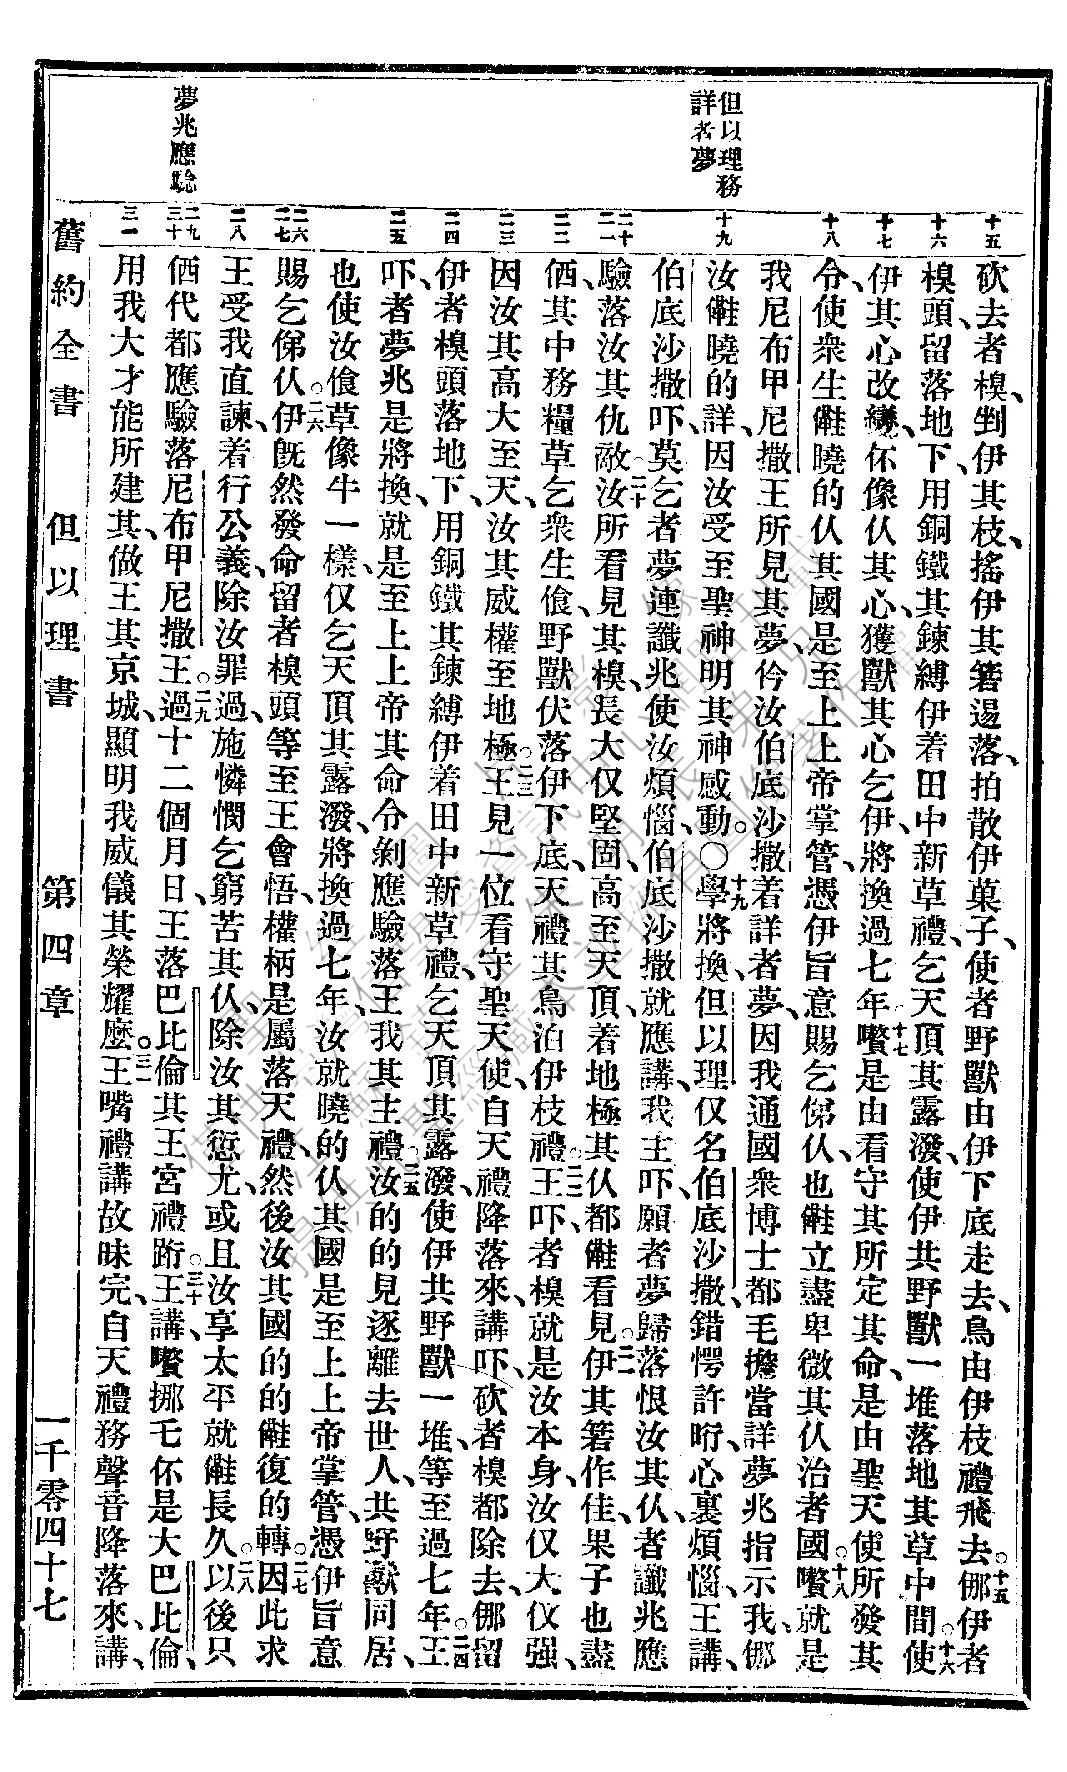 但以理務
詳者夢
夢兆應驗
十五
十六
十七
十八
十九
二十
二一
二二
二三
二四
二五
二六
二七
二八
二九
三十
三一
砍去者模、剉伊其枝、搖伊其箬逷落、拍散伊菓子、使者野獸由伊下底走去、鳥由伊枝禮飛去○十五 㑚伊者
模頭、留落地下、用銅鐵其鍊縛伊着田中新草禮、乞天頂其露潑、使伊共野獸一堆落地其草中間○十六 使
伊其心改變、伓像仈其心、獲獸其心乞伊、將換過七年○十七 嚽是由看守其所定其命、是由聖天使所發其
令、使衆生𠆧曉的仈其國是至上上帝掌管、憑伊旨意賜乞俤仈、也𠆧立盡卑微其仈治者國○十八 嚽就是
我尼布甲尼撒王所見其夢、衿汝伯底沙撒着詳者夢、因我通國衆博士都毛擔當詳夢兆指示我、㑚
汝𠆧曉的詳、因汝受至聖神明其神感動○○十九 學將換但以理仅名伯底沙撒、錯愕許昕、心裏煩惱、王講、
伯底沙撒吓、莫乞者夢連讖兆使汝煩惱、伯底沙撒就應講、我主吓、願者夢歸落恨汝其仈、者讖兆應
驗落汝其仇敵○二十 汝所看見其模、長大仅堅固、高至天頂、着地極其仈都𠆧看見○二一 伊其箬作佳、果子也盡
価、其中務糧草乞衆生飡、野獸伏落伊下底、天禮其鳥泊伊枝禮○二二 王吓、者模就是汝本身、汝仅大仅强、
因汝其高大至天、汝其威權至地極○二三 王見一位看守聖天使、自天禮降落來、講吓、砍者模都除去、㑚留
伊者模頭落地下、用銅鐵其鍊縛伊着田中新草禮、乞天頂其露潑、使伊共野獸一堆、等至過七年○二四 王
吓、者夢兆是將換、就是至上上帝其命令、剝應驗落王我其主禮○二五 汝的的見逐離去世人、共野獸同居、
也使汝飡草像牛一樣、仅乞天頂其露潑、將換過七年、汝就曉的仈其國是至上上帝掌管、憑伊旨意
賜乞俤仈○二六 伊旣然發命留者模頭、等至王會悟、權柄是屬落天禮、然後汝其國的的𠆧復的轉○二七 因此求
王受我直諫、着行公義、除汝罪過、施憐憫乞窮苦其仈、除汝其愆尤、或且汝享太平就𠆧長久○二八 以後只
価代都應驗落尼布甲尼撒王○二九 過十二個月日、王落巴比倫其王宮禮跴○三十 王講、嚽挪毛伓是大巴比倫、
用我大才能所建其、做王其京城、顯明我威儀其榮耀麽○三一 王嘴禮講故昧完、自天禮務聲音降落來、講、
舊約全書 但以理書 第四章 一千零四十七